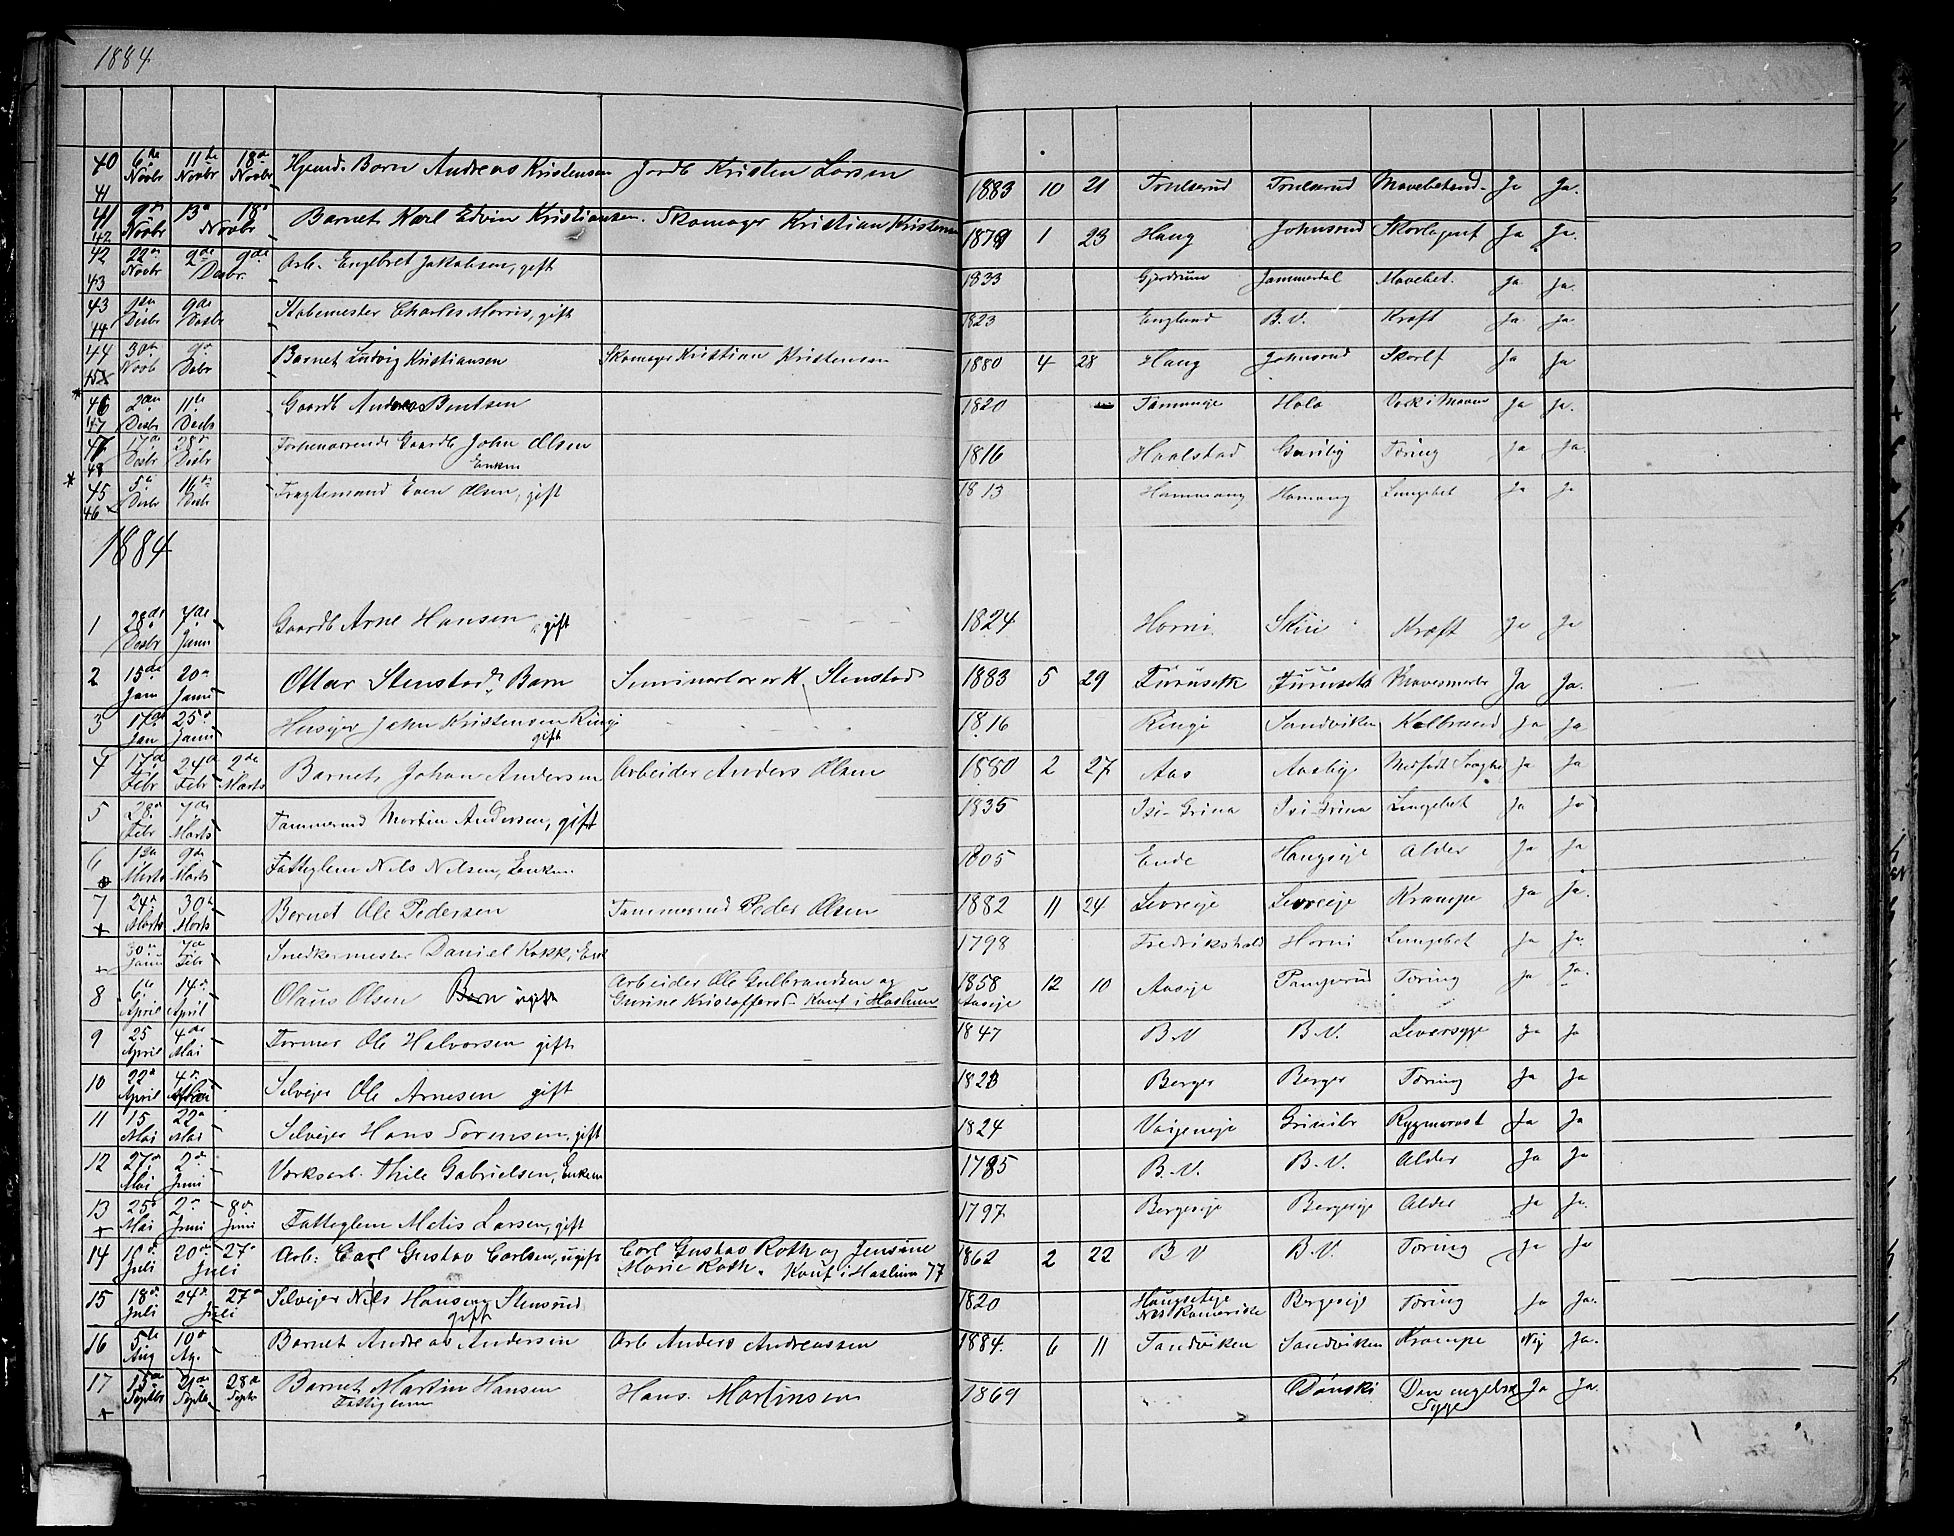 1884
40 6te Novbr 11te Novbr 18de Novbr Hjemd. Barn Andreas Kristensen Jordb Kristen Larsen 1883 10 21 Toulserud Toulserud Mavebetænd. Ja Ja.
41
41 9de Novbr 13de 18de Novbr Barnet Karl Edvin Kristiansen. Skomager Kristian Kristensen 1879 1 23 Haug Johnsrud Skarlagensf Ja Ja.
42
42 22de Novbr 9de Desbr. 9de Arb. Engebret Jakobsen, gift 1833 Gjerdrum Jammerdal Mavebet. Ja Ja.
43
43 1ste Desbr 9de Desbr Stabemester Charles Morris, gift 1823 England B.V. Kræft Ja Ja
44
44 30te Novb 9de Desbr Barnet Ludvig Kristiansen Skomager Kristian Kristensen 1880 4 28 Haug Johnsrud Skarlf Ja Ja
45
46 2den Desbr 11te Desbr Gaardb Andreas Bentsen 1820 Tømmeeje Holo Værk i Maven Ja Ja.
47
47 17de Desbr 28de Desbr Forhenværende Gaardb John Olsen Enkem 1816 Haalstad Gueriby Tæring Ja Ja
48
45 5te Desbr 16de Desbr Fragtemand Even Olsen, gift 1813 Hammang Hamang Lungebet Ja Ja
46
1884
1 28de Desbr 7de Janu Gaardb Arne Hansen, gift 1824 Horni Skui Kræft Ja Ja
2 15de Jan 20de Janu Ottar Stenstads Barn Seminarlærer K. Stenstad 1883 5 29 Furuseth Furuseth Mavesmerte Ja Ja.
3 17de Jan 25de Janu Husejer John Kristensen Ringi gift 1816 Ringi Sandviken Kolbrand Ja Ja
4 17de Febr 24de Febr 2de Marts Barnet Johan Andersen Arbeider Anders Olsen 1880 2 27 Aas Aasbye Medfødt Svaghed Ja Ja
5 28de Febr 7de Marts Tømmermd Martin Andersen, gift 1835 Isi-Grina Isi-Grina Lungebet Ja Ja
6 1ste Marts 9de Marts Fattiglem Nils Nilsen, Enkem. 1805 Ende Haugseje Alder Ja Ja
7 24de Marts 30te Marts Barnet Ole Pedersen Tømmermd Peder Olsen 1882 11 24 Levreeje Levreeje Krampe Ja Ja
+ 30te Janu 7de Febr Snedkermester Daniel Kokk, Enk 1798 Fredrikshald Horni Lungebet Ja Ja
8 6te April 14de April Olaus Olsen Barn ugift Arbeider Ole Gulbrandsen og Gurine Kristoffersd. Konf i Haslum 1858 Aaseje 12 10 Aaseje Tangerud Tæring Ja Ja.
9 25 April 4de Mai Former Ole Halvorsen gift 1847 B.V B.V. Leversyge Ja Ja
10 22de April 4de Mai Selvejer Ole Arnesen gift 1823 Berger Berger Tæring Ja Ja
11 15 Mai 22de Mai Selvejer Hans Sørensen, gift 1824 Vøjeneje Grinibr Rygmarvst Ja Ja
12 27de Mai 2de Juni Værksarb. Thile Gabrielsen, Enkem 1785 B.V. B.V. Alder Ja Ja
13 25de Mai 2de Juni 8de Juni Fattiglem Matis Larsen, gift 1797 Bergereje Bergereje Alder Ja Ja.
14 16de Juli 20de 27de Juli Arb: Carl Gustav Carlsen, ugift Carl Gustav Roth og Jensine Marie Roth. Konf i Haslum 77 1862 2 22 B V B.V. Tæring Ja Ja
15 18de Juli 24de 27de Juli Selvejer Nils Hansen Stensrud gift 1820 Haugseteje Nes Romerike Bergereje Tæring Ja Ja.
16 5te Aug 10de Ag. Barnet Andreas Andersen Arb Anders Andreassen 1884. 6 11 Sandviken Sandviken Krampe Nej Ja.
17 15de Septbr 21de Septb 28de Septb Barnet Martin Hansen Fattiglem Hans. Martinsen 1869 Dønski Den engelske Syge Ja Ja.